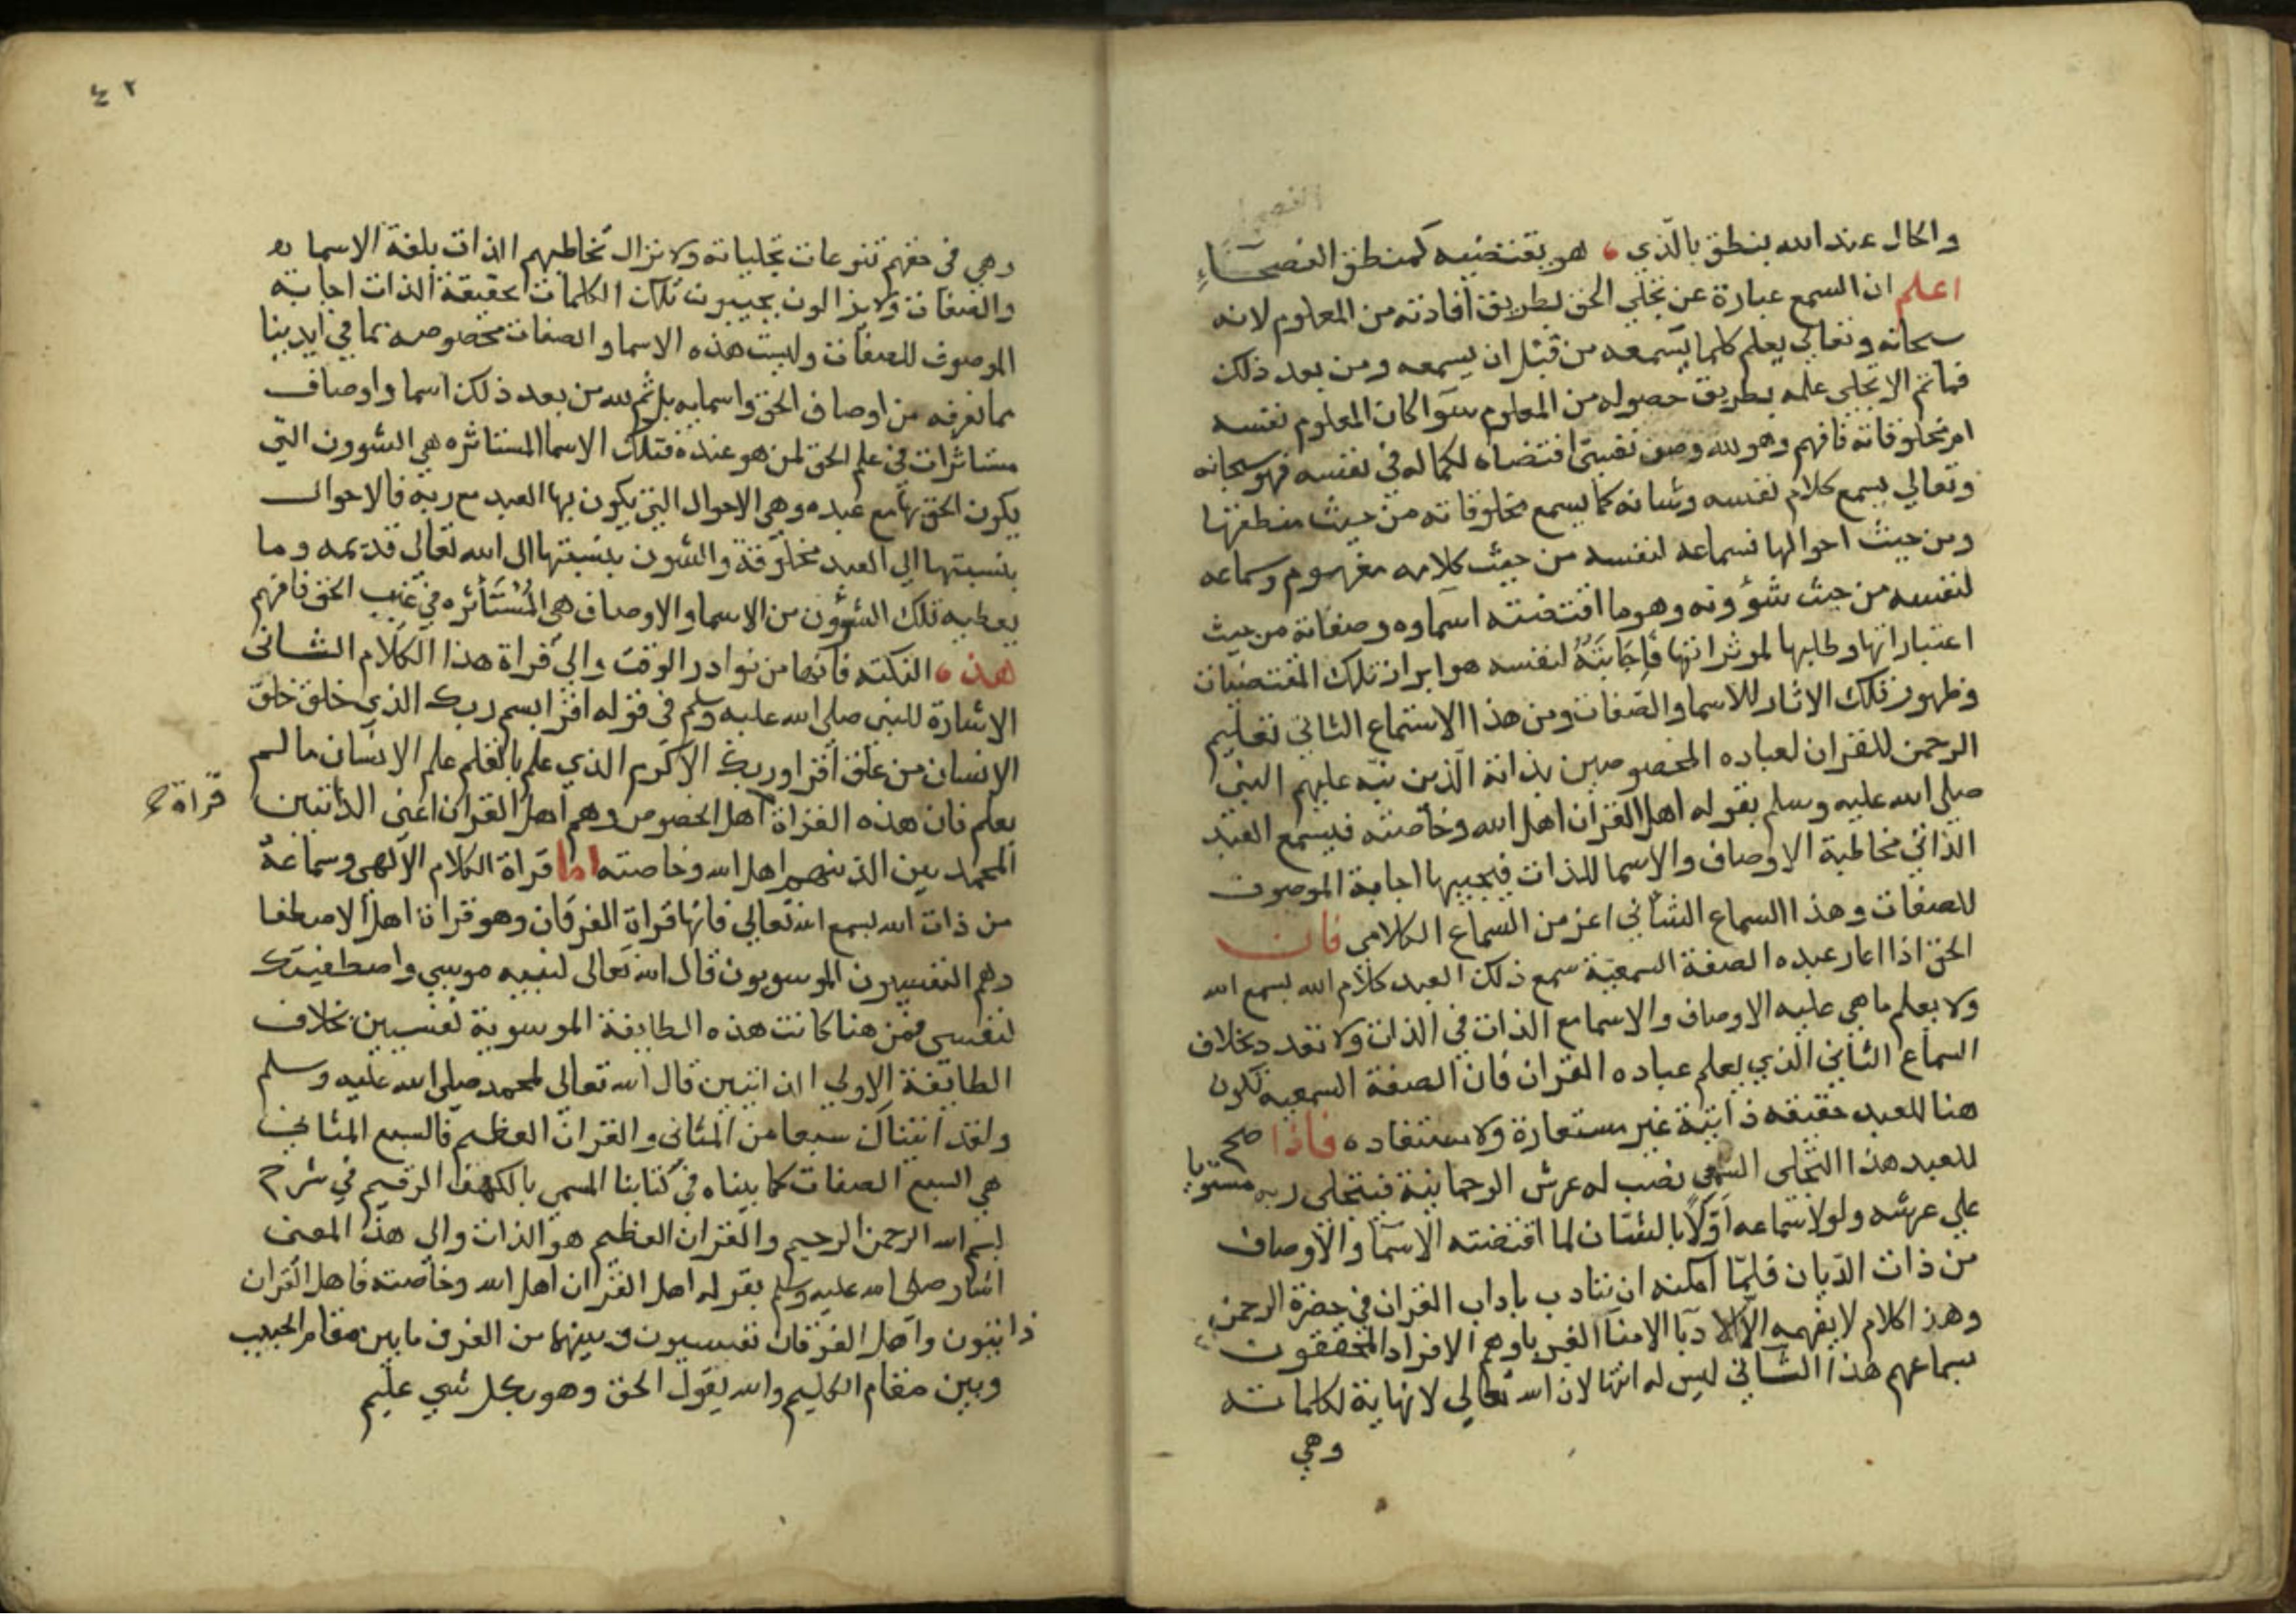 والحال عند الله ينطق بالذي ، هو يقتضيه كمنطق الفصحاء
اعلم ان السمع عبارة عن تجلي الحق بطريق افادته من المعلوم لانه
سبحانه وتعالي يعلم كلما يسمعه من قبل ان يسمعه ومن بعد ذلك
فماثم الا تجلي علمه بطريق حصوله من المعلوم سوا كان المعلوم نفسه
ام مخلوقاته فافهم وهو لله وصف نفسي اقتضاه لكماله في نفسه فهو سبحانه
وتعالي يسمع كلام نفسه وشانه كما يسمع مخلوقاته من حيث منطقها
ومن حيث احوالها فسماعه لنفسه من حيث كلامه مفهوم وسماعه
لنفسه من حيث شؤونه وهو ما اقتضته اسماوه وصفاته من حيث
اعتباراتها وطلبها لموثراتها فإجابته لنفسه هو ابراز تلك المقتضيات
وظهور تلك الاثار للاسما والصفات ومن هذا الاستماع الثاني تعليم
الرحمن للقران لعباده المخصوصين بذاته الذين نبه عليهم النبي
صلي الله عليه وسلم بقوله اهل القران اهل الله وخاصته فيسمع العبد
الذاتي مخاطبة الاوصاف والاسما للذات فيجيبها اجابة الموصوف
للصفات وهذا السماع الثاني اعز من السماع الكلامي فان
الحق اذا اعار عبده الصفة السمعية سمع ذلك العبد كلام الله بسمع الله
ولا يعلم ما هي عليه الاوصاف والاسما مع الذات في الذات ولا تعدد بخلاف
السماع الثاني الذي يعلم عباده القران فان الصفة السمعيه تكون
هنا للعبد حقيقه ذاتية غير مستعارة ولا مستفاده فاذا صح
للعبد هذا التجلي السمعي نصب له عرش الرحمانية فيتجلي ربه مستويا
علي عرشه ولولا سماعه أوّلاً بالشان لما اقتضته الاسما والاوصاف
من ذات الديان فلما امكنه ان يتادب باداب القران في حضرة الرحمن
وهذا كلام لا يفهمه الا الادبا الامنا الغربا وهم الافراد المحققون
سماعهم هذا الثاني ليس له انتها لان الله تعالي لا نهاية لكلماته
وهي
٤٢
وهي في حقهم تنوعات تجلياته ولا تزال تخاطبهم الذات بلغة الاسما
والصفات ولا يزالون يجيبون تلك الكلمات بحقيقة الذات اجابة
الموصوف للصفات وليست هذه الاسما والصفات مخصوصه بما في ايدينا
مما نعرفه من اوصاف الحق واسمايه بل ثم لله من بعد ذلك اسما واوصاف
مستاثرات في علم الحق لمن هو عنده فتلك الاسما المستاثره هي الشوون التي
يكون الحق بها مع عبده وهي الاحوال التي يكون بها العبد مع ربه فالاحوال
بنسبتها الي العبد مخلوقة والشون بنسبتها الى الله تعالى قديمه وما
يعطيه تلك الشؤون من الاسما والاوصاف هي المُسْتَأثره في غيب الحق فافهم
هذه ، النكته فانها من نوادر الوقت والي قراة هذا الكلام الثاني
الاشارة للنبي صلي الله عليه وسلم في قوله اقرا باسم ربك الذي خلق خلق
الانسان من علق اقرا وربك الاكرم الذي علم بالقلم علم الانسان ما لم
يعلم فان هذه القراة اهل الخصوص وهم اهل القران اعني الذاتيين
قراة
المحمديين الذينهم اهل الله وخاصته اما قراة الكلام الالهي وسماعه
من ذات الله بسمع الله تعالي فانها قراة الفرقان وهو قراة اهل الاصطفا
وهم النفسيون الموسويون قال الله تعالى لنبيه موسي واصطفيتك
لنفسي فمن هنا كانت هذه الطايفة الموسوية نفسيين بخلاف
الطايفة الاولي قال الله تعالى لمحمد صلي الله عليه وسلم
ولقد اتيناك سبعا من المثاني والقران العظيم فالسبع المثاني
هي السبع الصفات كما بيناه في كتابنا المسمي بالكهف الرقيم في شرح
بسم الله الرحمن الرحيم والقران العظيم هو الذات والى هذا المعني
اشار صلي الله عليه وسلم بقوله اهل القران اهل الله وخاصته فاهل القران
ذاتيون واهل الفرقان نفسيون وبينهما من الفرق ما بين مقام الحبيب
وبين مقام الكليم والله يقول الحق وهو بكل شي عليم